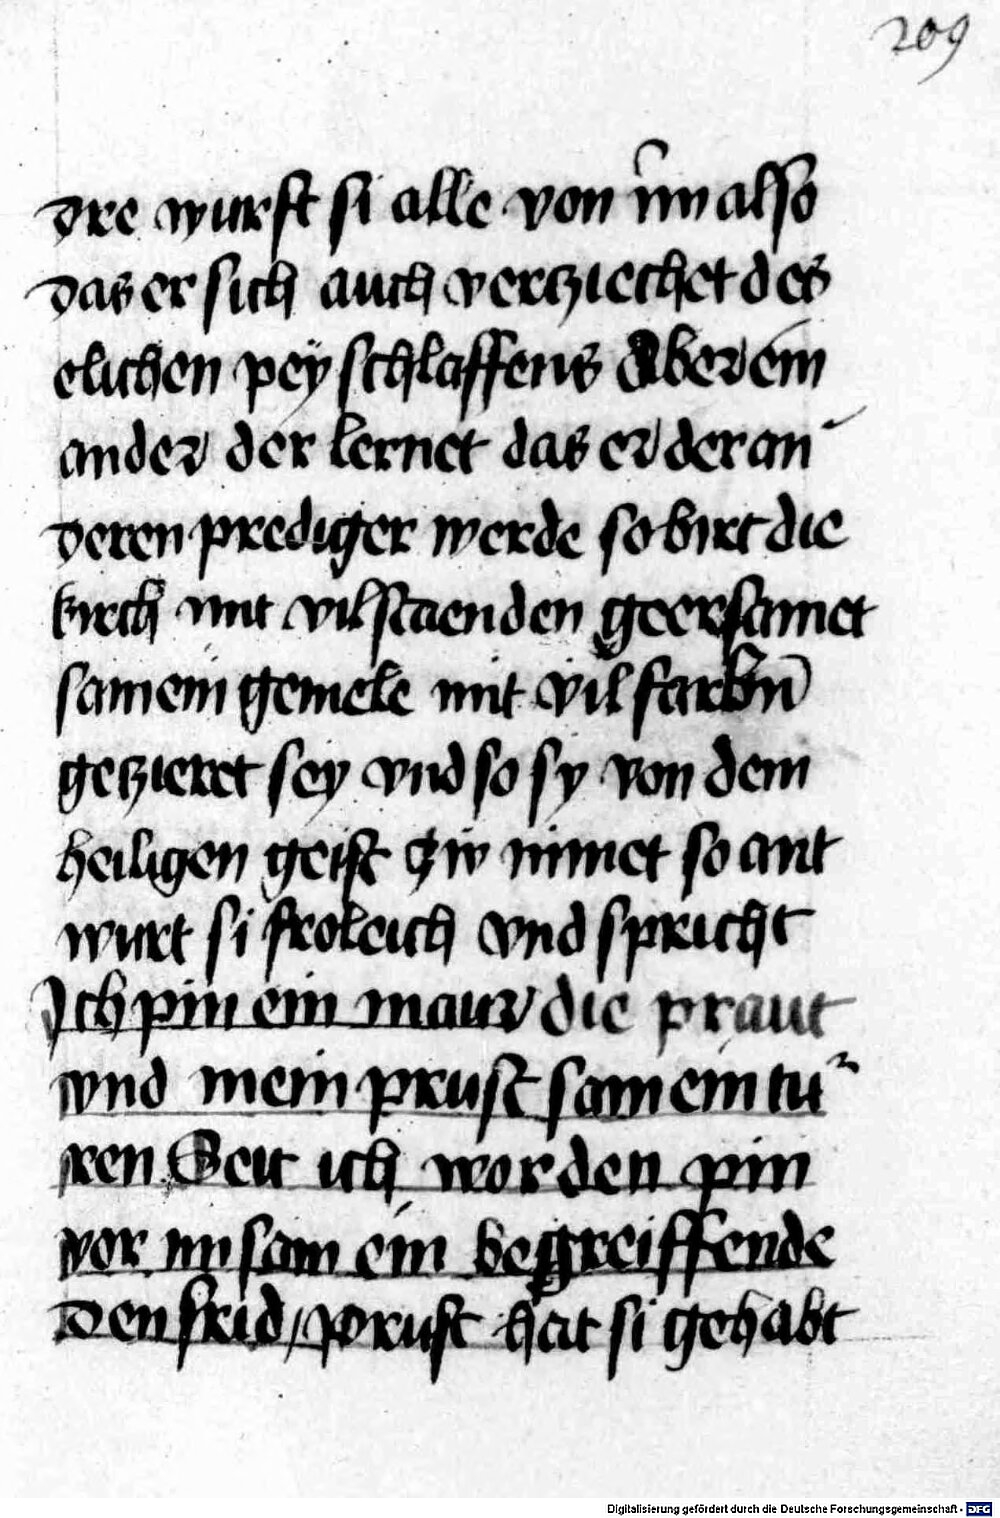 209
dre wurft si alle von im also
das er sich auch vertziechet des
elichen pey schlaffens Aber ein
ander der lernet das er der an
deren prediger werde so birt die
kirch mit vil staenden geersamet
sam ein gemele mit vil farbn̄
getzieret sey vnd so sy von dem
heiligen geist tziv nimet so ant
wurt si froleich vnd spricht
Ich pin ein maur die praut
vnd mein prust sam ein tu
ren Seit ich worden pin
vor im sam ein begreiffende
den frid / prust hat si gehabt
Digitalisierung gefördert durch die Deutsche Forschungsgemeinschaft - DFG